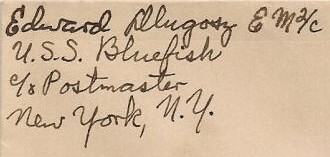 Edward Dlugosz EM 2/c
U.S.S. Bluefish
c/o Postmaster
New York, N.Y.